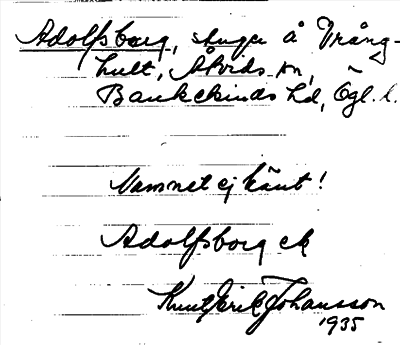 Adolfsborg, stuga å Vrång-
hult, Åtvids sn,
Bankekinds hd, Ögl. l.
Namnet ej känt!
Adolfsborg ek
Knut Erik Johansson
1935